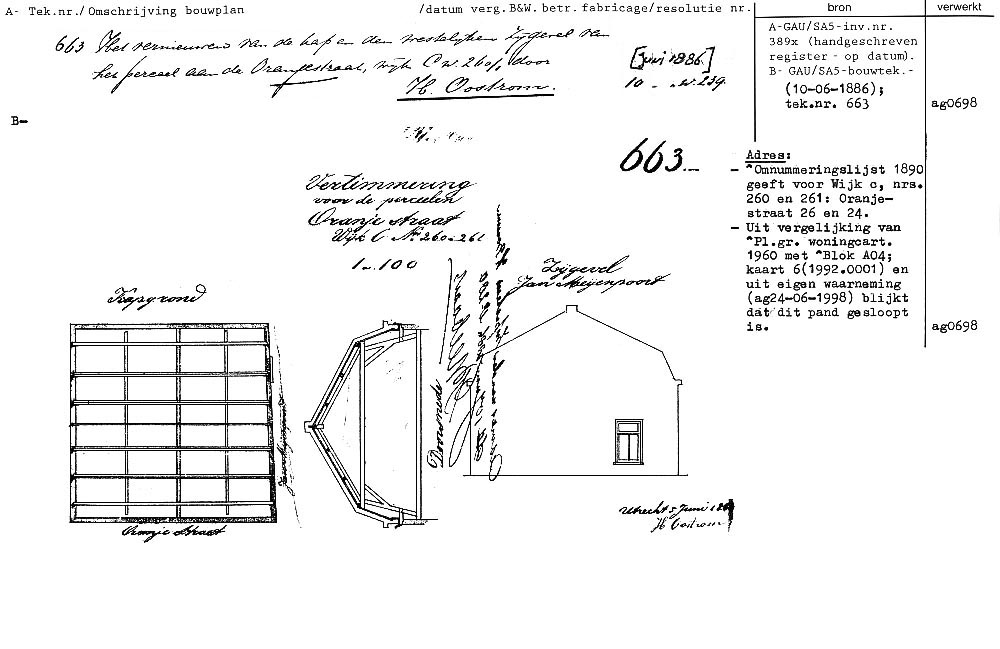 A- Tek.nr./Omschrijving bouwplan /datum verg.B&W. betr. fabricage/resolutie nr. bron verwerkt
663 Het vernieuwen van de kap en den westelijken zijgevel van
het perceel aan de Oranjestraat, wijk C no. 260/1, door
H. Oostrom.
[Juni 1886.]
10 239.
A-GAU/SA5-inv.nr.
389x (handgeschreven
register - op datum).
B- GAU/SA5-bouwtek.-
(10-06-1886);
tek.nr. 663 ag0698
B-
663.-
Adres:
- *Omnummeringslijst 1890
geeft voor Wijk c, nrs.
260 en 261: Oranje-
straat 26 en 24.
- Uit vergelijking van
*Pl.gr. woningcart.
1960 met *Blok A04;
kaart 6(1992.0001) en
uit eigen waarneming
(ag24-06-1998) blijkt
dat dit pand gesloopt
is. ag0698
Vertimmering
voor de perceelen
Oranje straat
Wijk C No. 260-261
1 à 100
Kapgrond
Zijgevel
Jan Meijenpoort
Doorsnede
Oranje Straat
Utrecht 5 Juni
H Oostrom